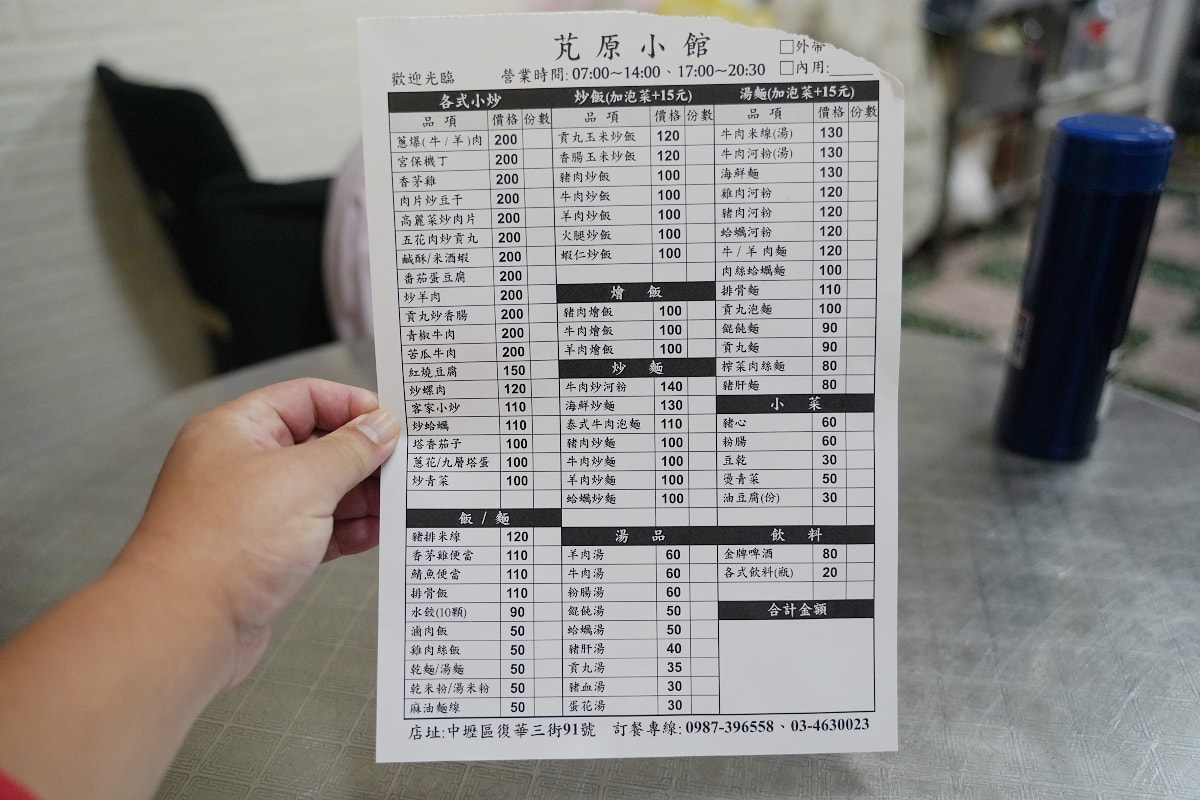 芃原小館
□外帶
歡迎光臨 營業時間: 07:00~14:00、17:00~20:30 □內用:
各式小炒
品項 價格 份數
蔥爆(牛/羊)肉 200
宮保機丁 200
香茅雞 200
肉片炒豆干 200
高麗菜炒肉片 200
五花肉炒貢丸 200
鹹酥/米酒蝦 200
番茄蛋豆腐 200
炒羊肉 200
貢丸炒香腸 200
青椒牛肉 200
苦瓜牛肉 200
紅燒豆腐 150
炒螺肉 120
客家小炒 110
炒蛤蠣 110
塔香茄子 100
蔥花/九層塔蛋 100
炒青菜 100
飯/麵
豬排米線 120
香茅雞便當 110
鯖魚便當 110
排骨飯 110
水餃(10顆) 90
滷肉飯 50
雞肉絲飯 50
乾麵/湯麵 50
乾米粉/湯米粉 50
麻油麵線 50
炒飯(加泡菜+15元)
品項 價格 份數
貢丸玉米炒飯 120
香腸玉米炒飯 120
豬肉炒飯 100
牛肉炒飯 100
羊肉炒飯 100
火腿炒飯 100
蝦仁炒飯 100
燴飯
豬肉燴飯 100
牛肉燴飯 100
羊肉燴飯 100
炒麵
牛肉炒河粉 140
海鮮炒麵 130
泰式牛肉泡麵 110
豬肉炒麵 100
牛肉炒麵 100
羊肉炒麵 100
蛤蠣炒麵 100
湯品
羊肉湯 60
牛肉湯 60
粉腸湯 60
餛飩湯 50
蛤蠣湯 50
豬肝湯 40
貢丸湯 35
豬血湯 30
蛋花湯 30
湯麵(加泡菜+15元)
品項 價格 份數
牛肉米線(湯) 130
牛肉河粉(湯) 130
海鮮麵 130
雞肉河粉 120
豬肉河粉 120
蛤蠣河粉 120
牛/羊肉麵 120
肉絲蛤蠣麵 100
排骨麵 110
貢丸泡麵 100
餛飩麵 90
貢丸麵 90
榨菜肉絲麵 80
豬肝麵 80
小菜
豬心 60
粉腸 60
豆乾 30
燙青菜 50
油豆腐(份) 30
飲料
金牌啤酒 80
各式飲料(瓶) 20
合計金額
店址:中壢區復華三街91號 訂餐專線: 0987-396558、03-4630023